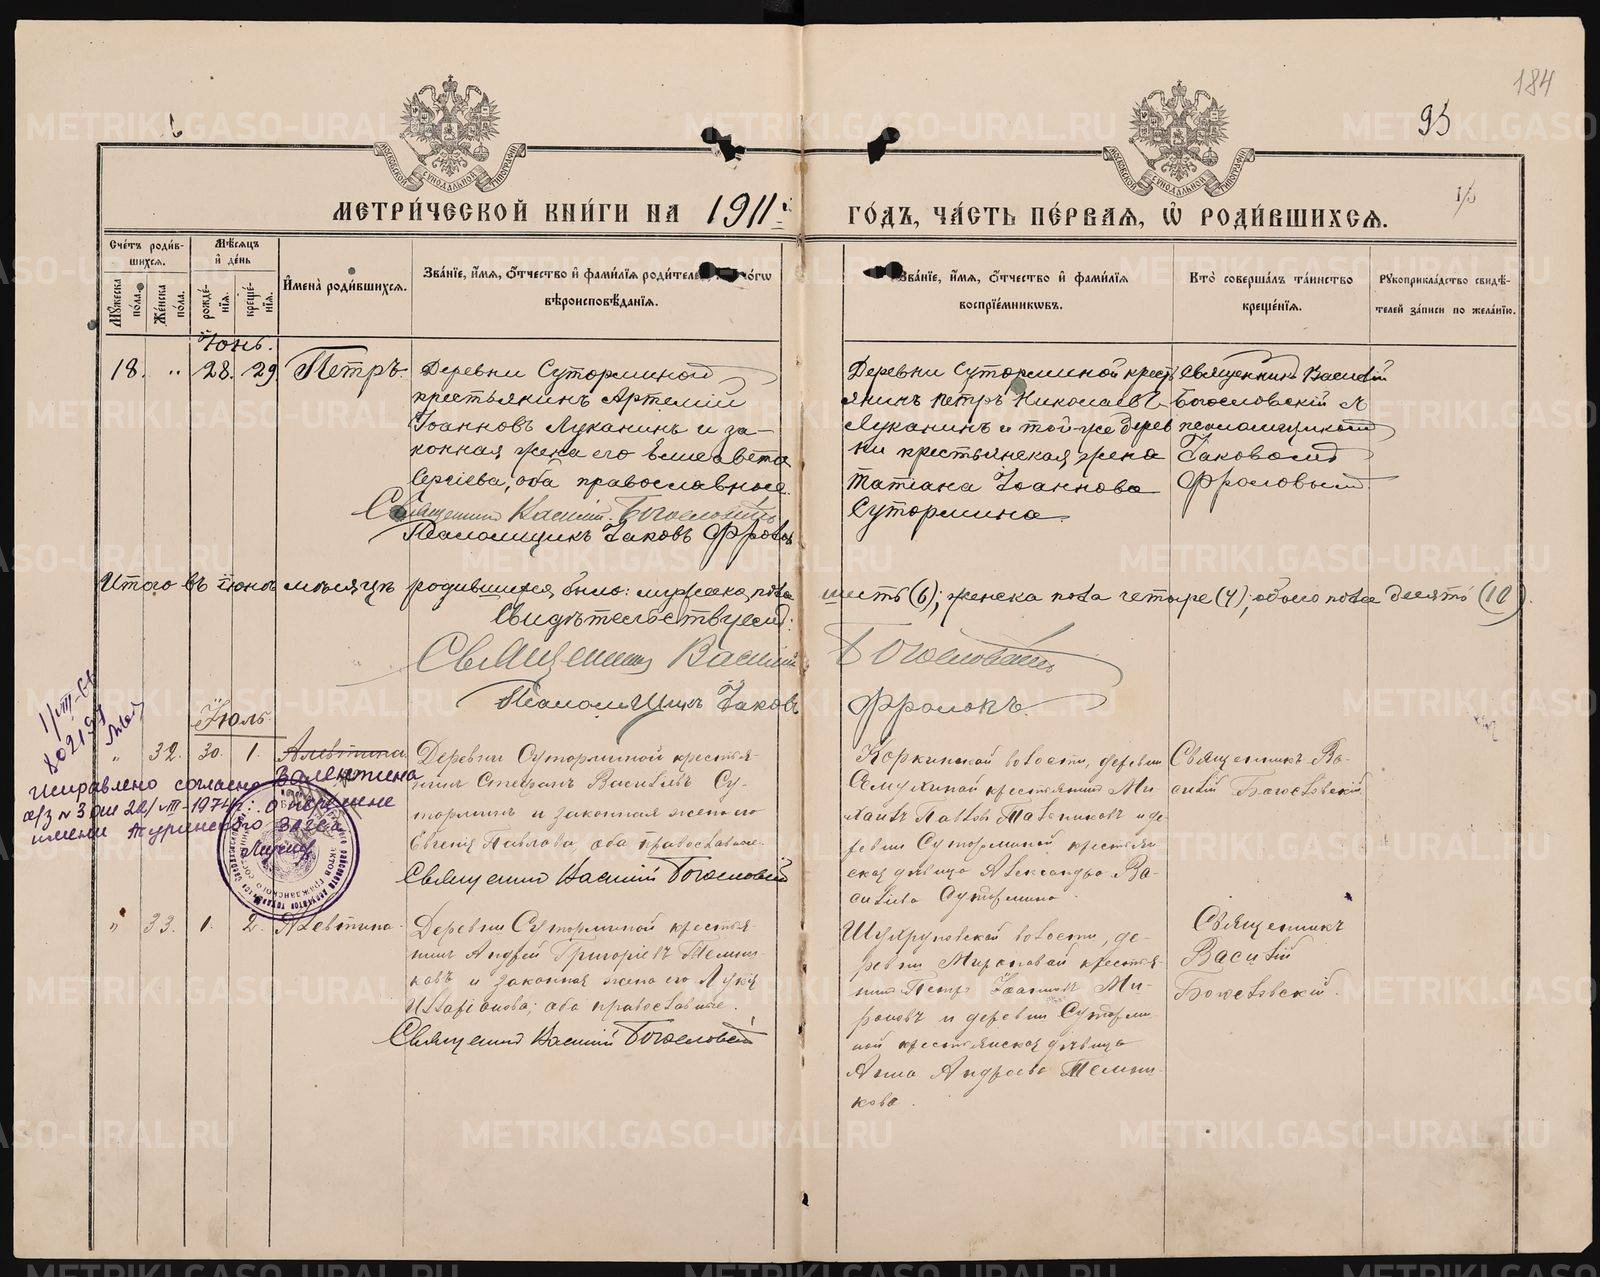 184
93
МЕТРИ́ЧЕСКОЙ КНИ́ГИ НА 1911 ГО́ДЪ, ЧА́СТЬ ПЕ́РВАЯ, Ѡ҆ РОДИ́ВШИХСЯ.
Сче́тъ роди́вшихся.
Мѣ́сяцъ и҆ де́нь
Му́жеска по́ла.
Же́нска по́ла.
рожде́нїя.
креще́нїя.
И҆мена̀ роди́вшихся.
Зва́нїе, и҆́мя, о҆́тчество и҆ фами́лїя роди́телей,
вѣроисповѣ́данїя.
Зва́нїе, и҆́мя, о҆́тчество и҆ фами́лїя
воспрїе́мниковъ.
Кто̀ соверша́лъ та́инство
креще́нїя.
Рукоприкла́дство свидѣ́телей за́писи по жела́нїю.
Іюнь.
18. " 28. 29. Петръ.
Деревни Сутор­миной
крестьянинъ Артемій
Іоанновъ Луканинъ и за-
конная жена его Елисавета
Сергіева, оба православные.
Священникъ Василій Богословскій
Псаломщикъ Іаковъ Фроловъ
Деревни Суторминой кресть
янинъ Петръ Николаевъ
Луканинъ и той-же дерев
ни крестьянская жена
Татіана Іоаннова
Сутормина.
Священникъ Василій
Богословскій съ
псаломщикомъ
Іаковомъ
Фроловымъ.
Итого въ іюнѣ мѣсяцѣ родившихся было: мужска пола шесть (6); женска пола четыре (4); обоего пола десять (10).
Свидѣтельствуемъ:
Священникъ Василій Богословскій
Псаломщикъ Іаковъ Фроловъ.
Іюль.
" 32. 30. 1. Алевтина
Валентина
исправлено согласно
а/з № 3 от 22/VIII-1974 г. о перемене
имени Туринского Загса
Деревни Суторминой крестья
нинъ Стефанъ Васильевъ Су-
торминъ и законная жена его
Евгенія Павлова, оба православные.
Священникъ Василій Богословскій
Коркинской волости, деревни
крестьянинъ Ми-
хаилъ Павловъ и де-
ревни Суторминой крестьян
ская дѣвица Александра Ва-
сильева Сутормина.
Священникъ Ва-
силій Богословскій.
" 33. 1. 2. Алевтина.
Деревни Суторминой крестья-
нинъ Андрей Григорьевъ Темни-
ковъ и законная жена его Лукія
Иларіонова, оба православные.
Священникъ Василій Богословскій
Шухруповской волости, де-
ревни Мироновой крестья-
нинъ Петръ Іоанновъ Ми-
роновъ и деревни Сутормин
ной крестьянская дѣвица
Анна Андреева Темни-
кова.
Священникъ
Василій
Богословскій.
METRIKI.GASO-URAL.RU